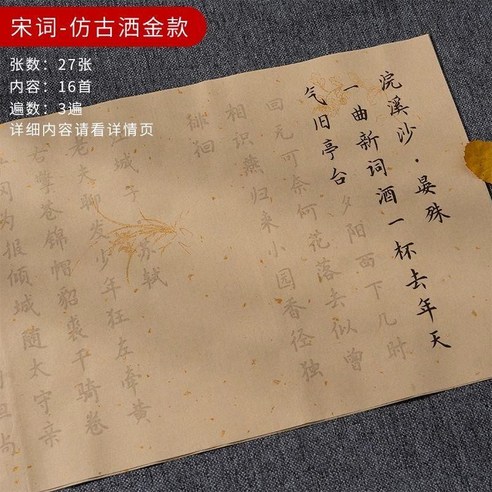 宋词-仿古洒金款
张数：27张
内容：16首
遍数：3遍
详细内容请看详情页
浣溪沙·晏殊
一曲新词酒一杯去年天
气旧亭台夕阳西下几时
回无可奈何花落去似曾
相识燕归来小园香径独
徘徊
城子 苏轼
老夫聊发少年狂左牵黄
右擎苍锦帽貂裘千骑卷
冈为报倾城随太守亲
尚